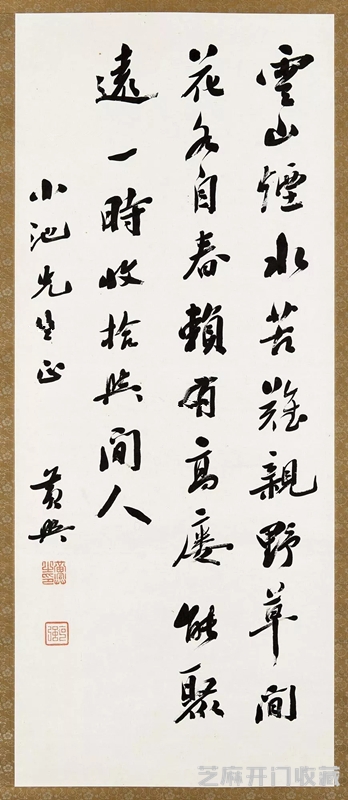 雲山煙水苦難親野草閒
花各自春賴有高樓能聚
遠一時收拾與閒人
小池先生正
黃興
芝麻开门收藏